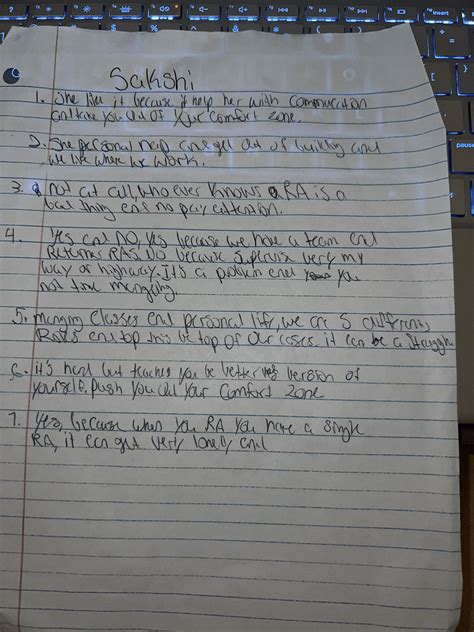 Sakshi
1. She like it because it help her with commucation
and take you out of your comfort zone.
2. She personal and get out of building and
we live where we work.
3. not at all, who ever knows RA is a
bad thing end no pay attention.
4. Yes end NO, yes because we have a team end
Returns RAs. NO because Supervise very my
way or highway. It's a problem end you
not time manging.
5. manging classes end personal life, we are 5 different
Roles end top this be top of our classes. it can be a struggle
6. it's hard but teaches you be better version of
yourself. push you out your comfort zone
7. Yes, because when you RA you have a single
RA, it can get very lonely end
insert
pause